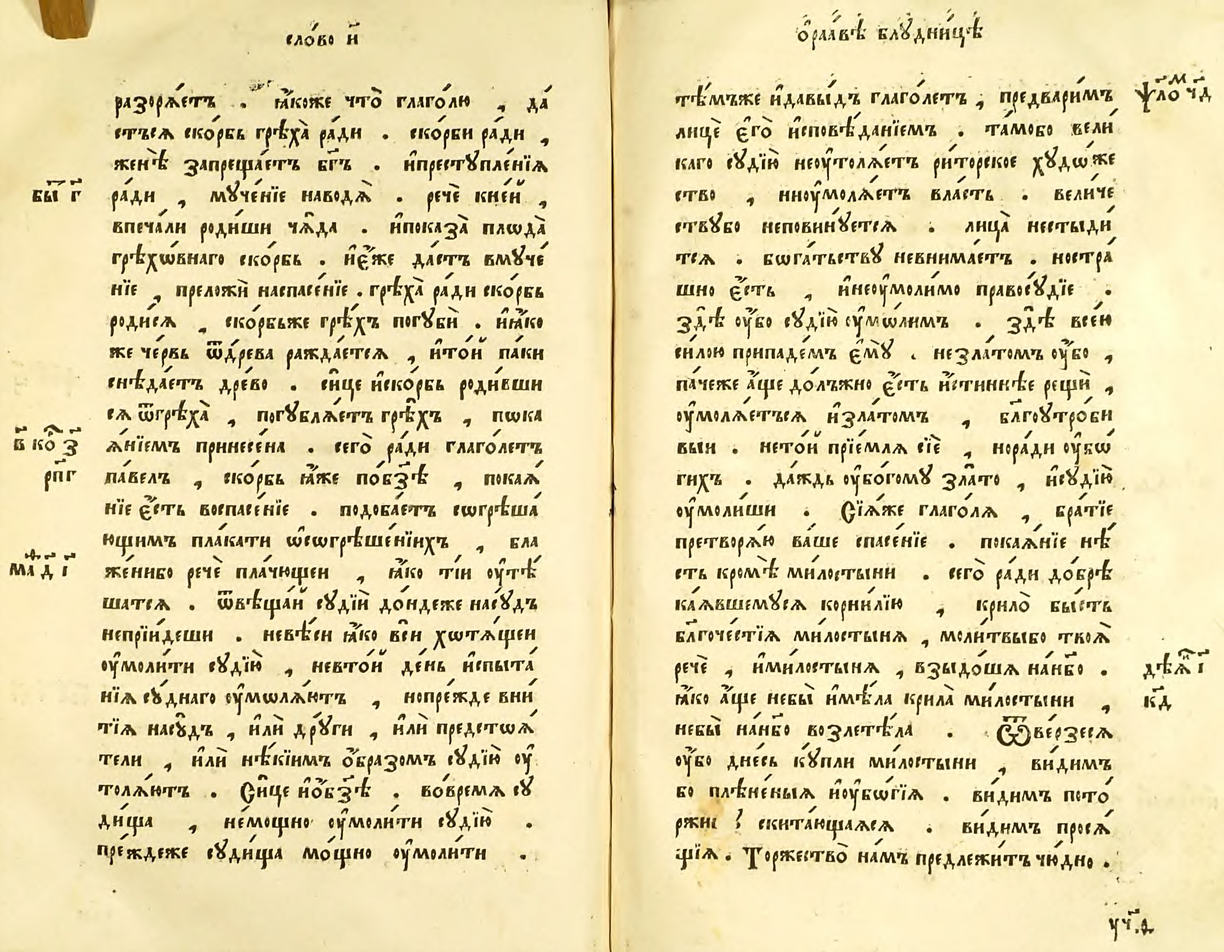 сло́во и҃
разорѧ́етъ . ꙗ҆́коже что̀ глаго́лю , да́
стъсѧ ско́рбь грѣха̀ ра́ди . ско́рби ра́ди ,
женѣ̀ запреща́етъ бг҃ъ . и҆преступле́нїѧ
бы҃і г҃
ра́ди , муче́нїе наводѧ̀ . речѐ кне́й ,
впеча́ли роди́ши чѧ̑да . и҆показа̀ плѡда̀
грѣхѡ́внаго ско́рбь . и҆є҆́же да́етъ вмуче́
нїе , преложѝ наспасе́нїе . грѣха̀ ра́ди ско́рбь
роди́сѧ , ско́рбьже грѣ́хъ погубѝ . и҆ꙗ҆́ко
же че́рвь ѿдре́ва ражда́етсѧ , и҆то́й па́ки
снѣда́етъ дре́во . си́це и҆ско́рбь роди́вши
сѧ ѿгрѣха̀ , погублѧ́етъ грѣ́хъ , пѡка
в҃ ко҃ з҃
ѧ́нїемъ принесе́на . сего̀ ра́ди глаго́летъ
рп҃г
па́велъ , ско́рбь ꙗ҆́же по́бз҃ѣ , покаѧ́
нїе є҆́сть воспасе́нїе . подоба́етъ сѡгрѣша́
ющимъ пла́кати ѡ҆сѡгрѣше́нїихъ , бла
мѳ҃ д҃ і҃
же́нибо речѐ пла́чющеи , ꙗ҆́ко ті́и ᲂу҆тѣ́
шатсѧ . ѿвѣща́й судїѝ до́ндеже насу́дъ
непрїи́деши . невѣ́си ꙗ҆́ко всѝ хотѧ́щеи
ᲂу҆моли́ти судїю̀ , невто́й де́нь и҆спыта́
нїѧ су́днаго ᲂу҆мѡлѧ́ютъ , нопре́жде вни́
тїѧ насу́дъ , и҆лѝ дру́ги , и҆лѝ предстѡѧ́
тели , и҆лѝ нѣ́кіимъ ѻ҆́бразомъ судїю̀ ᲂу҆
толѧ́ютъ . Си́це и҆ѻ҆́бз҃ѣ . вовре́мѧ су
ди́ща , немо́щно ᲂу҆моли́ти судїю̀ .
пре́ждеже суди́ща мо́щно ᲂу҆моли́ти .
ѻ҆раа́вѣ блудни́цѣ
тѣ́мъже и҆давы́дъ глаго́летъ , предвари́мъ
ѱло҃м ч҃д
лицѐ є҆го̀ и҆сповѣ́данїемъ . та́мобо вели́
каго судїю̀ неᲂу҆толѧ́етъ ри́торское худѡ́же
ство , ниᲂу҆молѧ́етъ вла́сть . вели́че
ствубо неповину́етсѧ . лица̀ нестыди́
тсѧ . бѡга́тьству невнима́етъ . ностра́
шно є҆́сть , и҆неᲂу҆моли́мо правосу́дїе .
здѣ̀ ᲂу҆́бо судїю̀ ᲂу҆мѡ́лимъ . здѣ̀ все́ю
си́лою припаде́мъ є҆мꙋ̀ . незла́томъ ᲂу҆́бо ,
па́чеже а҆́ще до́лъжно є҆́сть и҆́стиннѣе рещѝ ,
ᲂу҆молѧ́етъсѧ и҆зла́томъ , бл҃гоутро́би
выи . нето́й прїе́млѧ сїѐ , нора́ди ᲂу҆бѡ́
гихъ . да́ждь ᲂу҆бо́гому зла́то , и҆судїю̀
ᲂу҆моли́ши . Сїѧ̑же глаго́лѧ , бра́тїе
претворѧ́ю ва́ше спасе́нїе . покаѧ́нїе нѣ́
сть кромѣ̀ ми́лостыни . сего̀ ра́ди до́брѣ
ка́ѧвшемусѧ корни́лїю , крило̀ бы́сть
бл҃гоче́стїѧ ми́лостынѧ , моли́твыбо твоѧ̀
речѐ , и҆ми́лостынѧ , взыдо́шѧ на́нб҃о .
дѣѧ҃ і҃
ꙗ҆́ко а҆́ще небы̀ и҆мѣ́ла крила̀ ми́лостыни ,
к҃д
небы̀ на́нб҃о возлетѣ́ла . Ѿве́рзесѧ
ᲂу҆́бо дне́сь ку́пли ми́лостыни , ви́димъ
бо плѣне́ныѧ и҆ᲂу҆бѡ́гїѧ . ви́димъ пото́
ржи́щ скита́ющаѧсѧ . ви́димъ просѧ́
щїѧ . Торжество̀ на́мъ предлежи́тъ чю́дно .